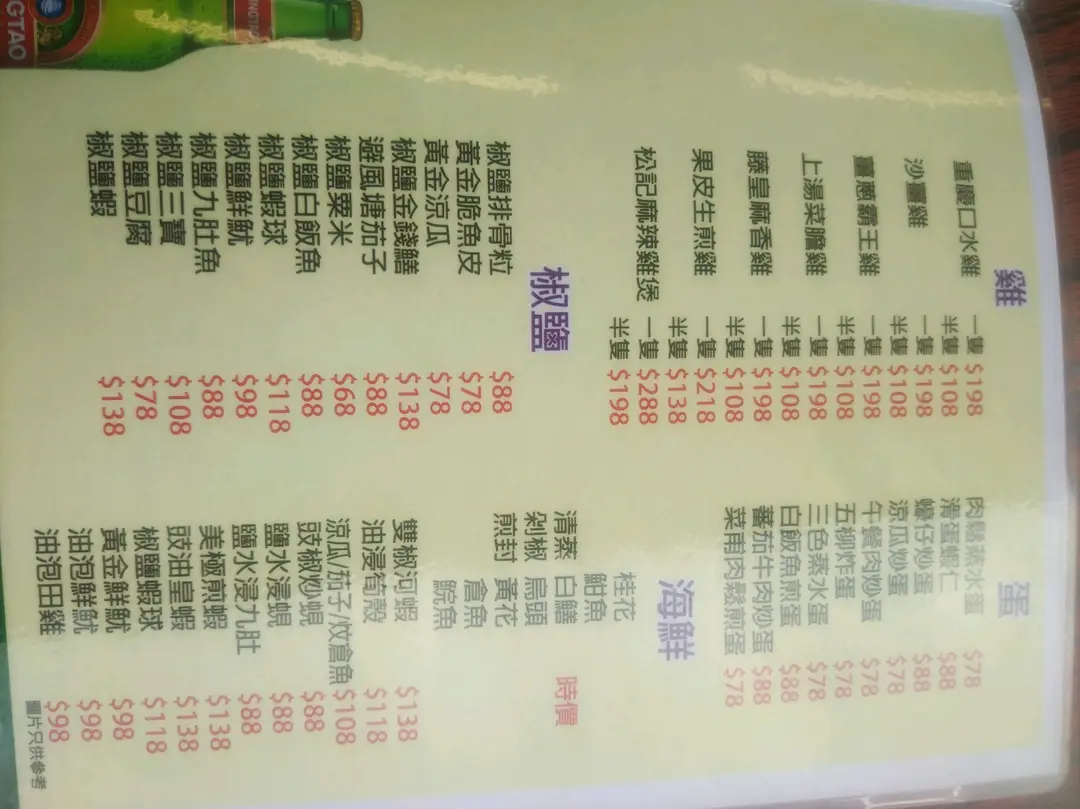 TSINGTAO
雞
重慶口水雞 一隻 $198
半隻 $108
沙薑雞 一隻 $198
半隻 $108
薑蔥霸王雞 一隻 $198
半隻 $108
上湯菜膽雞 一隻 $198
半隻 $108
藤皇麻香雞 一隻 $198
半隻 $108
果皮生煎雞 一隻 $218
半隻 $138
松記麻辣雞煲 一隻 $288
半隻 $198
椒鹽
椒鹽排骨粒 $88
黃金脆魚皮 $78
黃金涼瓜 $78
椒鹽金錢鱔 $138
避風塘茄子 $88
椒鹽粟米 $68
椒鹽白飯魚 $88
椒鹽蝦球 $118
椒鹽鮮魷 $98
椒鹽九肚魚 $88
椒鹽三寶 $108
椒鹽豆腐 $78
椒鹽蝦 $138
蛋
肉鬆蒸水蛋 $78
滑蛋蝦仁 $88
蠔仔炒蛋 $88
涼瓜炒蛋 $78
午餐肉炒蛋 $78
五柳炸蛋 $78
三色蒸水蛋 $78
白飯魚煎蛋 $88
蕃茄牛肉炒蛋 $88
菜甫肉鬆煎蛋 $78
海鮮
桂花
魽魚
清蒸 白鱔 時價
剁椒 烏頭
煎封 黃花
倉魚
鯇魚
雙椒河蝦 $138
油浸筍殼 $118
涼瓜/茄子/炆倉魚 $108
豉椒炒蜆 $88
鹽水浸蜆 $88
鹽水浸九肚 $88
美極煎蝦 $138
豉油皇蝦 $138
椒鹽蝦球 $118
黃金鮮魷 $98
油泡鮮魷 $98
油泡田雞 $98
圖片只供參考